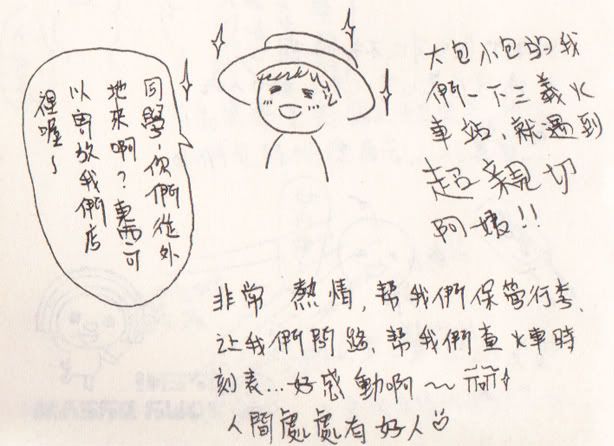 同學,你們從外
地來啊?東西可
以寄放我們店
裡喔~
大包小包的我
們一下三義火
車站、就遇到
超親切
阿姨!!
非常 熱情,幫我們保管行李、
讓我們問路、幫我們查火車時
刻表...好感動啊~~
人間處處有好人♡